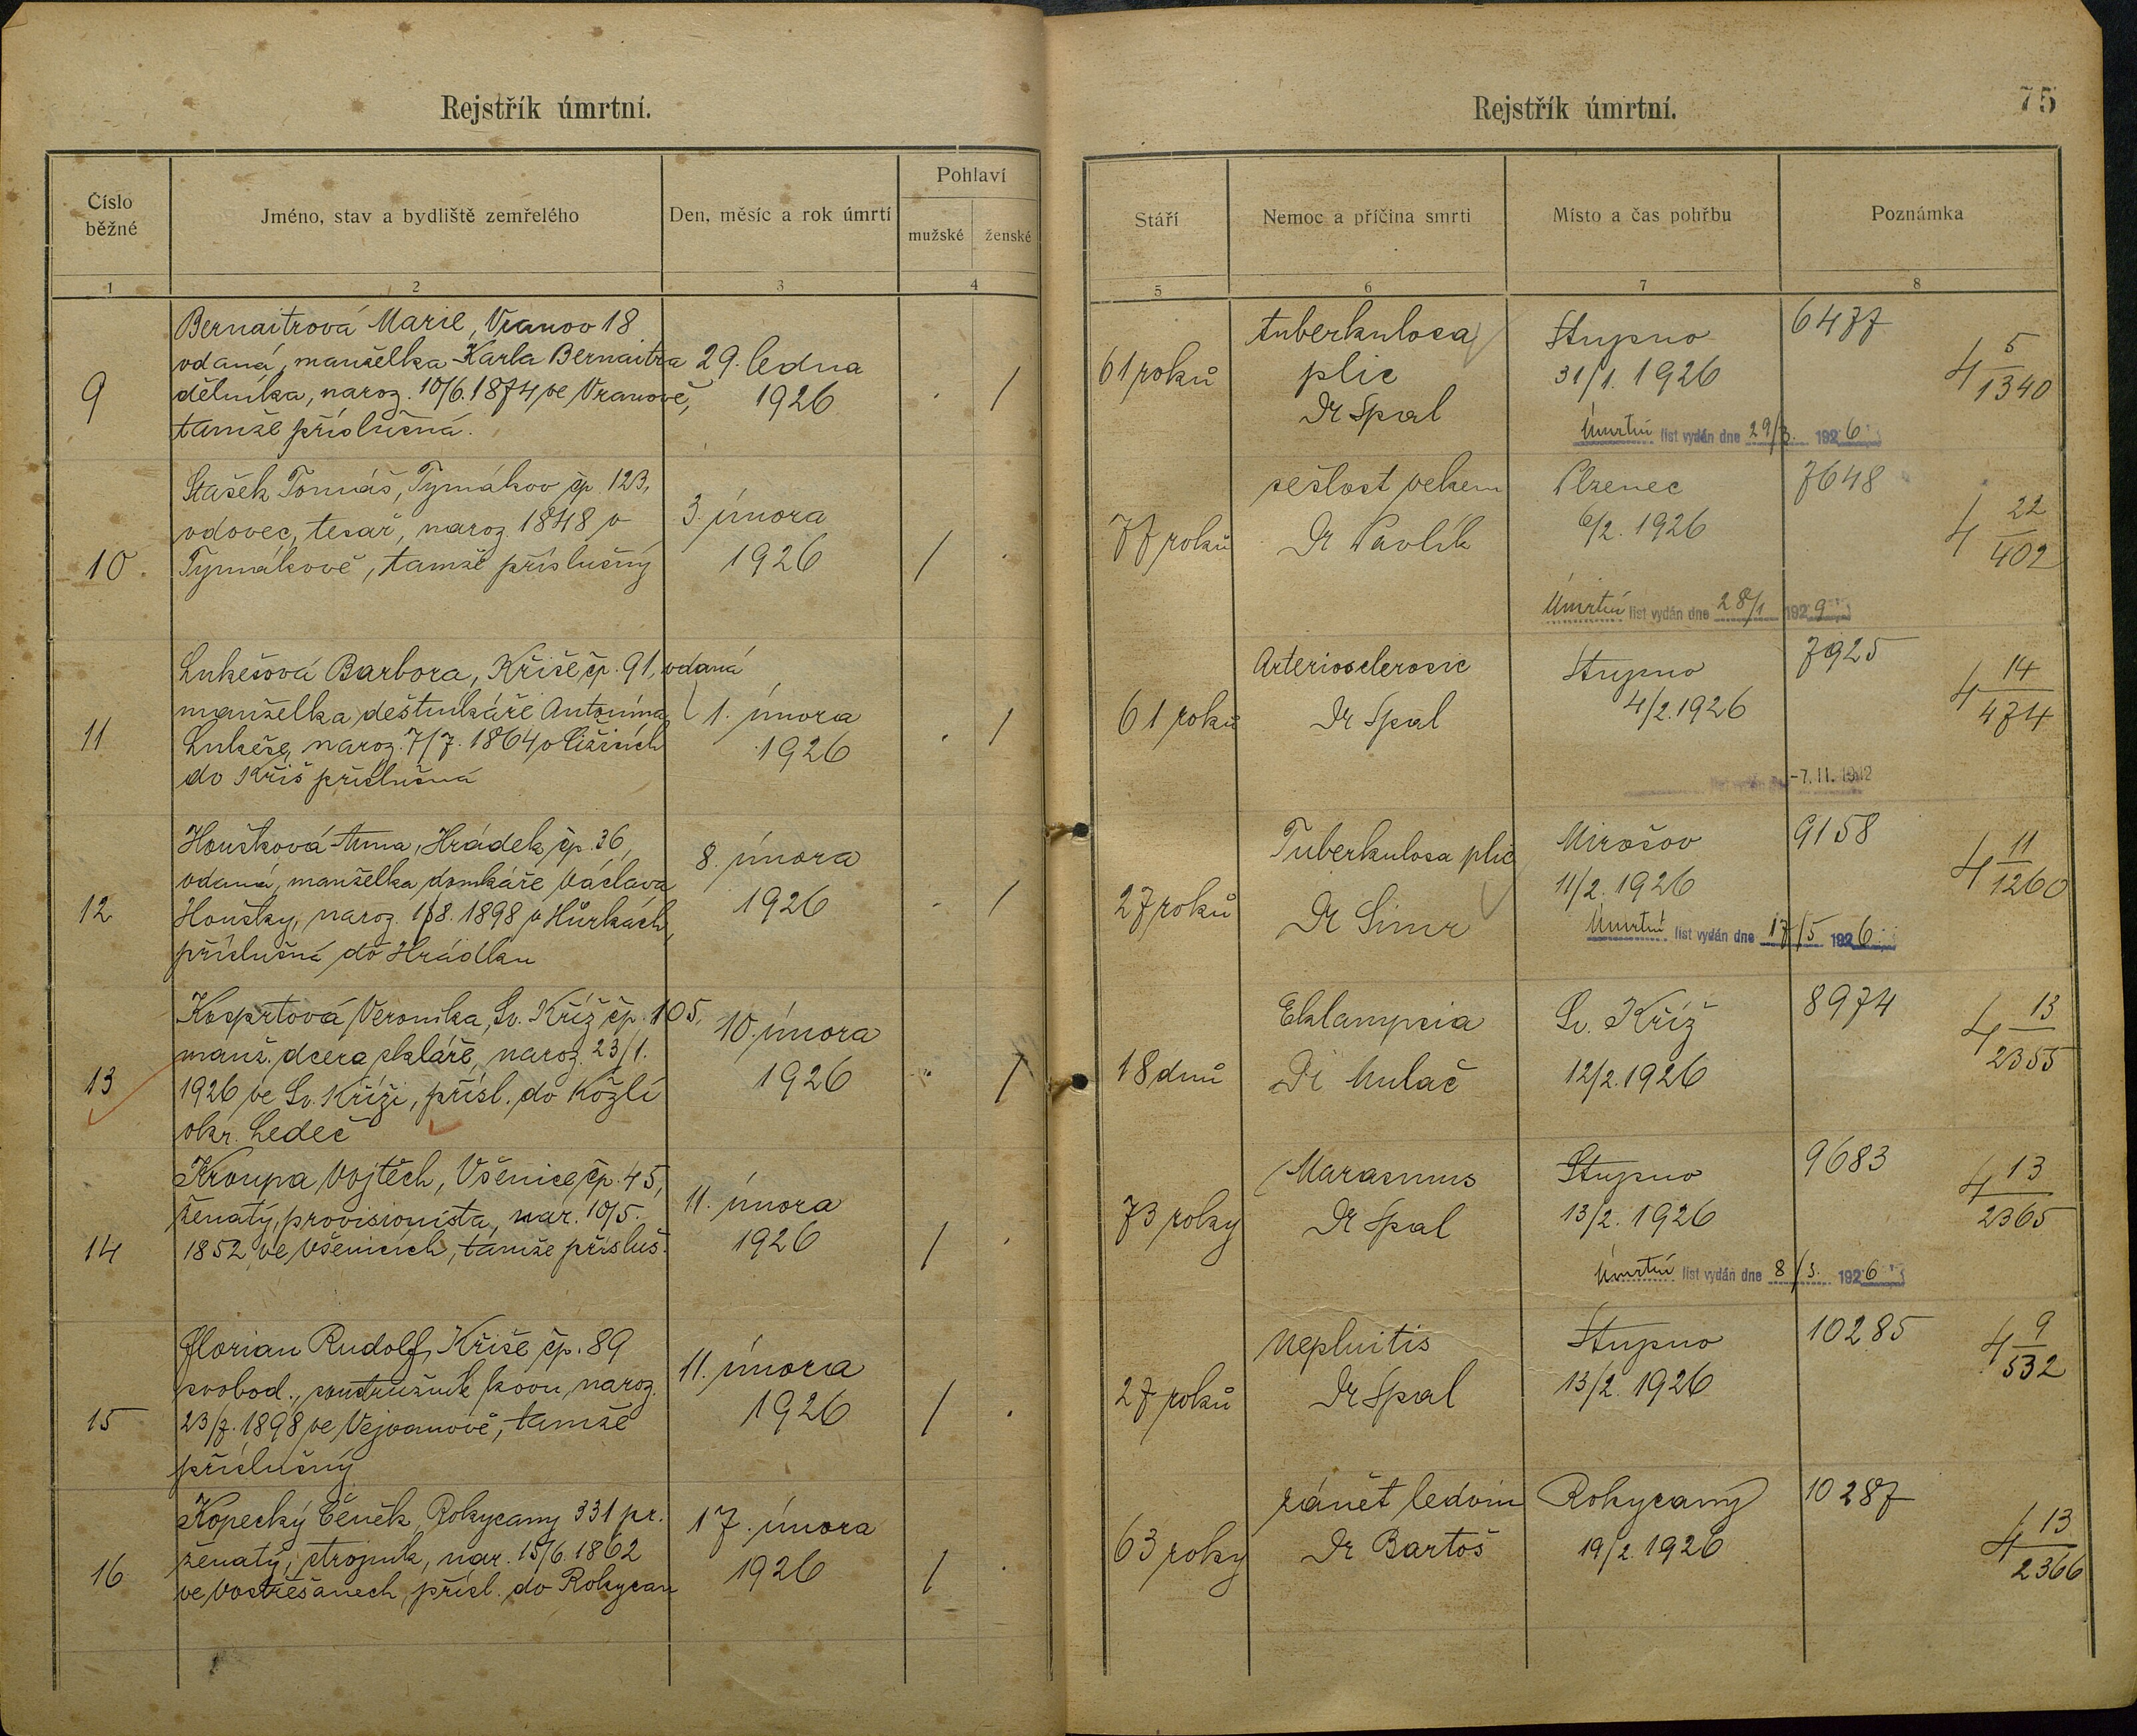 Rejstřík úmrtní.
Číslo běžné
Jméno, stav a bydliště zemřelého
Den, měsíc a rok úmrtí
Pohlaví
mužské
ženské
1
2
3
4
9
Bernaitrová Marie, Vranov 18
vdaná, manželka Karla Bernaitra
dělníka, naroz. 10/6. 1874 ve Vranově,
tamže příslušná.
29. ledna
1926
10.
Stašek Tomáš, Tymákov čp. 123,
vdovec, tesař, naroz. 1848 v
Tymákově, tamže příslušný
3. února
1926
11
Lukešová Barbora, Kříše čp. 91, vdaná
manželka deštníkáře Antonína
Lukeše, naroz. 7/7. 1864 v
do Kříš příslušná
1. února
1926
12
Houšková Anna, Hrádek čp. 36,
vdaná, manželka domkáře Václava
Houšky, naroz. 1/8. 1898 v Hůrkách,
příslušná do Hrádku
8. února
1926
13
Veronika, Sv. Kříž čp. 105,
manž. dcera skláře, naroz. 23/1.
1926 ve Sv. Kříži, přísl. do Kožlí
okr. Ledeč
10. února
1926
14
Kroupa Vojtěch, Všenice čp. 45,
ženatý, provisionista, nar. 10/5.
1852 ve Všenicích, tamže přísluš.
11. února
1926
15
Florian Rudolf, Kříše čp. 89
svobod., soustružník kovu, naroz.
23/7. 1898 ve Vejvanově, tamže
příslušný
11. února
1926
16
Kopecký Čeněk, Rokycany 331 pr.
ženatý, strojník, nar. 15/6. 1862
ve Vostřešanech, přísl. do Rokycan
17. února
1926
Rejstřík úmrtní.
75
Stáří
Nemoc a příčina smrti
Místo a čas pohřbu
Poznámka
5
6
7
8
61 roků
tuberkulosa
plic
Dr Spal
Stupno
31/1. 1926
6477
4 5/1340
Úmrtní list vydán dne 29/3. 1926
77 roků
sešlost věkem
Dr Pavlík
Plzenec
6/2. 1926
7648
4 22/402
Úmrtní list vydán dne 28/1 1929
61 roků
Arteriosclerosis
Dr Spal
Stupno
4/2. 1926
7925
4 14/474
-7. II. 1942
27 roků
Tuberkulosa plic
Dr Simr
Mirošov
11/2. 1926
9158
4 11/1260
Úmrtní list vydán dne 17/5 1926
18 dnů
Eklampsia
Sv. Kříž
12/2. 1926
8974
4 13/2355
73 roky
Marasmus
Dr Spal
Stupno
13/2. 1926
9683
4 13/2365
Úmrtní list vydán dne 8/3. 1926
27 roků
Nephritis
Dr Spal
Stupno
13/2. 1926
10285
4 9/532
63 roky
zánět ledvin
Dr Bartoš
Rokycany
19/2. 1926
10287
4 13/2366